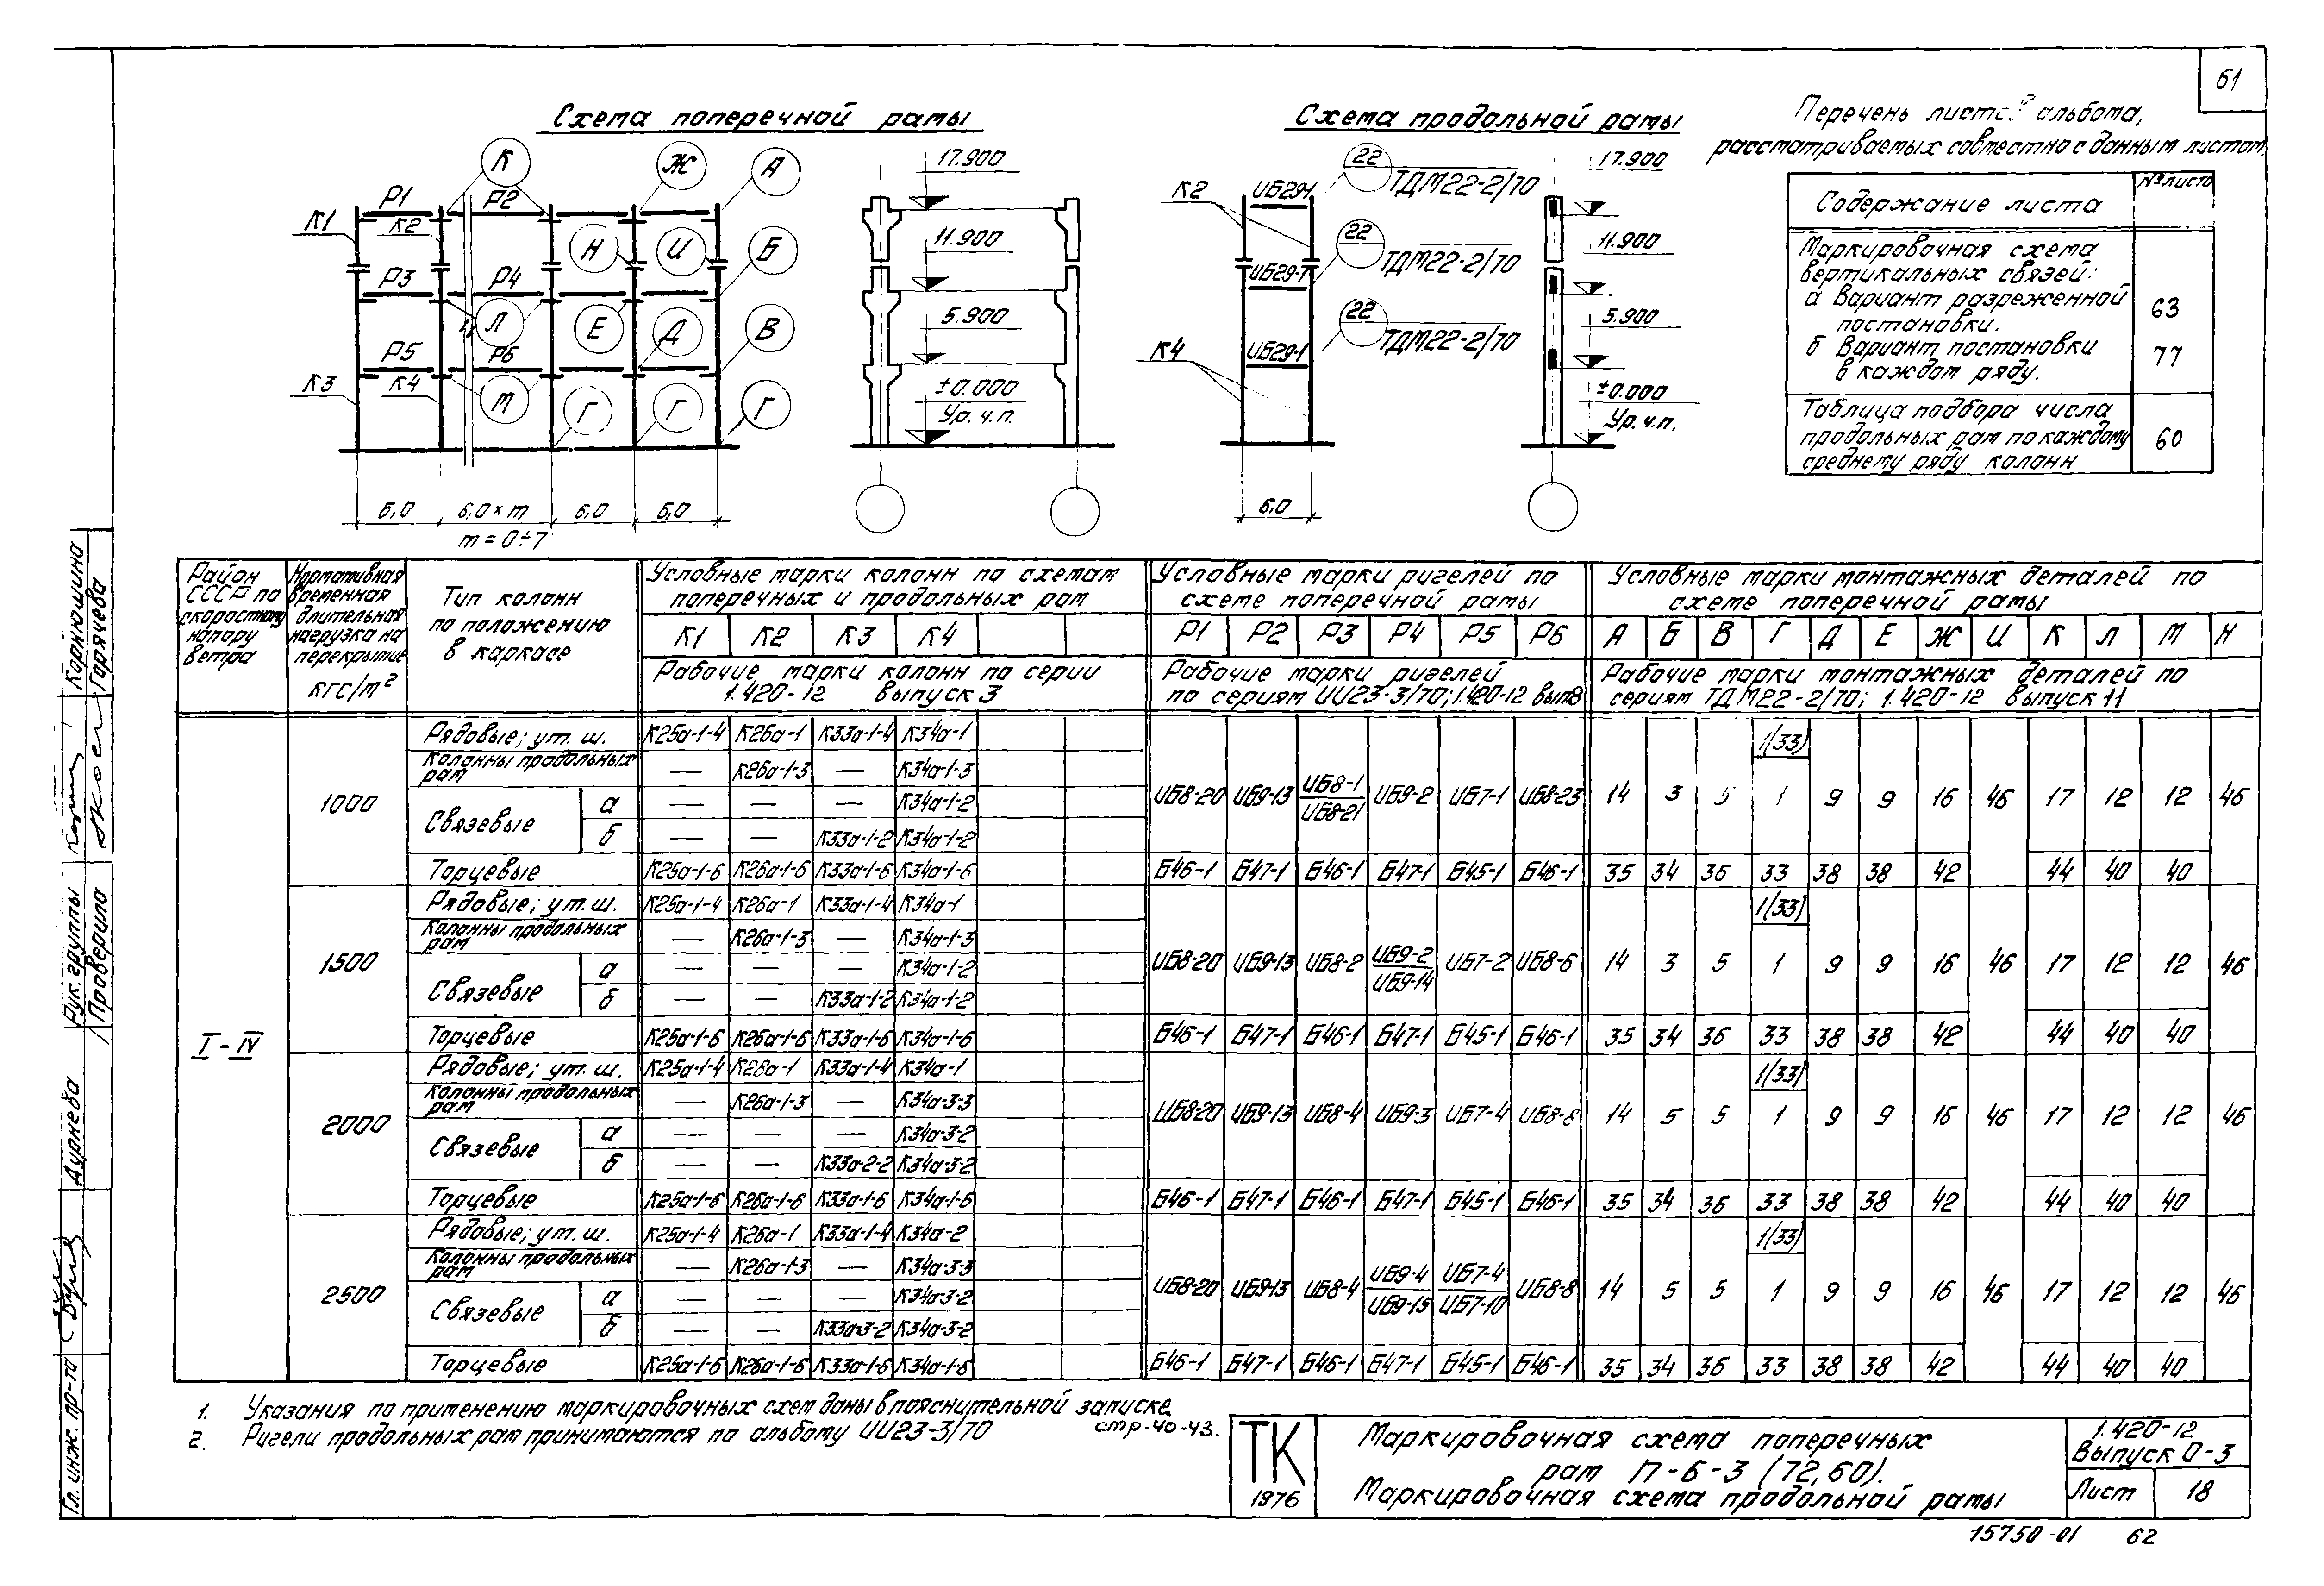 61
Схема поперечной рамы
Схема продольной рамы
Перечень листов альбома,
рассматриваемых совместно с данным листом
Содержание листа
№ листа
Маркировочная схема
вертикальных связей:
а Вариант разреженной
постановки.
63
б Вариант постановки
в каждом ряду.
77
Таблица подбора числа
продольных рам по каждому
среднему ряду колонн
60
К Ж А
Р1 Р2
К1 К2
Н И Б
Р3 Р4
Л Е Д В
Р5 Р6
К3 К4
М Г Г Г
6,0 6,0×m 6,0 6,0
m=0÷7
17.900
11.900
5.900
±0.000
Ур.ч.п.
К2
ИБ29-1
22
ТДМ22-2/70
ИБ29-1
22
ТДМ22-2/70
К4
ИБ29-1
22
ТДМ22-2/70
6,0
17.900
11.900
5.900
±0.000
Ур.ч.п.
Район СССР по скоростному напору ветра
Нормативная временная длительная нагрузка на перекрытие кгс/м²
Тип колонн по положению в каркасе
Условные марки колонн по схемам поперечных и продольных рам
К1 К2 К3 К4
Рабочие марки колонн по серии 1.420-12 выпуск 3
Условные марки ригелей по схеме поперечной рамы
Р1 Р2 Р3 Р4 Р5 Р6
Рабочие марки ригелей по сериям ИИ23-3/70; 1.420-12 вып8
Условные марки монтажных деталей по схеме поперечной рамы
А Б В Г Д Е Ж И К Л М Н
Рабочие марки монтажных деталей по сериям ТДМ22-2/70; 1.420-12 выпуск 11
I-IV
1000
Рядовые; ут.ш. К25а-1-4 К26а-1 К33а-1-4 К34а-1
1(33)
Колонны продольных рам — К26а-1-3 — К34а-1-3
Связевые
а — — — К34а-1-2
б — — К33а-1-2 К34а-1-2
ИБ8-20 ИБ9-13 ИБ8-1/ИБ8-21 ИБ9-2 ИБ7-1 ИБ8-23 14 3 5 1 9 9 16 46 17 12 12 46
Торцевые К25а-1-6 К26а-1-6 К33а-1-6 К34а-1-6 Б46-1 Б47-1 Б46-1 Б47-1 Б45-1 Б46-1 35 34 36 33 38 38 42 44 40 40
1500
Рядовые; ут.ш. К25а-1-4 К26а-1 К33а-1-4 К34а-1
1(33)
Колонны продольных рам — К26а-1-3 — К34а-1-3
Связевые
а — — — К34а-1-2
б — — К33а-1-2 К34а-1-2
ИБ8-20 ИБ9-13 ИБ8-2 ИБ9-2/ИБ9-14 ИБ7-2 ИБ8-6 14 3 5 1 9 9 16 46 17 12 12 46
Торцевые К25а-1-6 К26а-1-6 К33а-1-6 К34а-1-6 Б46-1 Б47-1 Б46-1 Б47-1 Б45-1 Б46-1 35 34 36 33 38 38 42 44 40 40
2000
Рядовые; ут.ш. К25а-1-4 К26а-1 К33а-1-4 К34а-1
1(33)
Колонны продольных рам — К26а-1-3 — К34а-3-3
Связевые
а — — — К34а-3-2
б — — К33а-2-2 К34а-3-2
ИБ8-20 ИБ9-13 ИБ8-4 ИБ9-3 ИБ7-4 ИБ8-8 14 5 5 1 9 9 16 46 17 12 12 46
Торцевые К25а-1-6 К26а-1-6 К33а-1-6 К34а-1-6 Б46-1 Б47-1 Б46-1 Б47-1 Б45-1 Б46-1 35 34 36 33 38 38 42 44 40 40
2500
Рядовые; ут.ш. К25а-1-4 К26а-1 К33а-1-4 К34а-2
1(33)
Колонны продольных рам — К26а-1-3 — К34а-3-3
Связевые
а — — — К34а-3-2
б — — К33а-3-2 К34а-3-2
ИБ8-20 ИБ9-13 ИБ8-4 ИБ9-4/ИБ9-15 ИБ7-4/ИБ7-10 ИБ8-8 14 5 5 1 9 9 16 46 17 12 12 46
Торцевые К25а-1-6 К26а-1-6 К33а-1-6 К34а-1-6 Б46-1 Б47-1 Б46-1 Б47-1 Б45-1 Б46-1 35 34 36 33 38 38 42 44 40 40
1. Указания по применению маркировочных схем даны в пояснительной записке
стр.40-43.
2. Ригели продольных рам принимаются по альбому ИИ23-3/70
ТК
1976
Маркировочная схема поперечных
рам П-6-3 (72,60).
Маркировочная схема продольной рамы
1.420-12
Выпуск 0-3
Лист 18
15750-01 62
Гл. инж. пр-та Дурнева
Рук. группы Корнюшина
Проверила Горячева